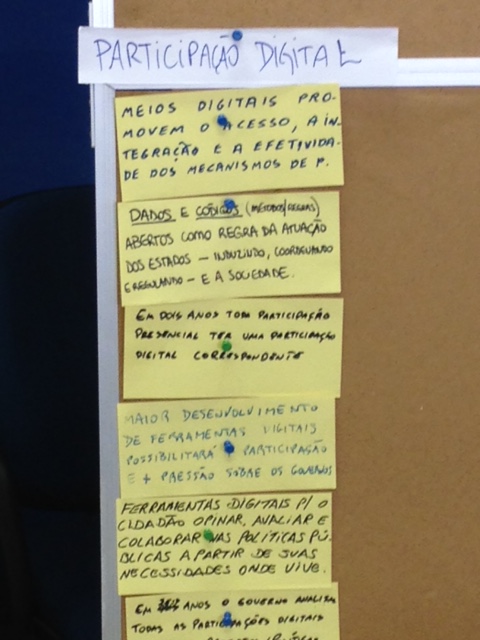 PARTICIPAÇÃO DIGITAL
MEIOS DIGITAIS PRO-
MOVEM O ACESSO, A IN-
TEGRAÇÃO E A EFETIVIDA-
DE DOS MECANISMOS DE P.
DADOS E CÓDIGOS (MÉTODOS/REGRAS)
ABERTOS COMO REGRA DA ATUAÇÃO
DOS ESTADOS — INDUZINDO, COORDENANDO
E REGULANDO — E A SOCIEDADE.
EM DOIS ANOS TODA PARTICIPAÇÃO
PRESENCIAL TER UMA PARTICIPAÇÃO
DIGITAL CORRESPONDENTE
MAIOR DESENVOLVIMENTO
DE FERRAMENTAS DIGITAIS
POSSIBILITARÁ PARTICIPAÇÃO
E + PRESSÃO SOBRE OS GOVERNOS
FERRAMENTAS DIGITAIS P/ O
CIDADÃO OPINAR, AVALIAR E
COLABORAR NAS POLÍTICAS PÚ-
BLICAS A PARTIR DE SUAS
NECESSIDADES ONDE VIVE.
EM ANOS O GOVERNO ANALISA
TODAS AS PARTICIPAÇÕES DIGITAIS